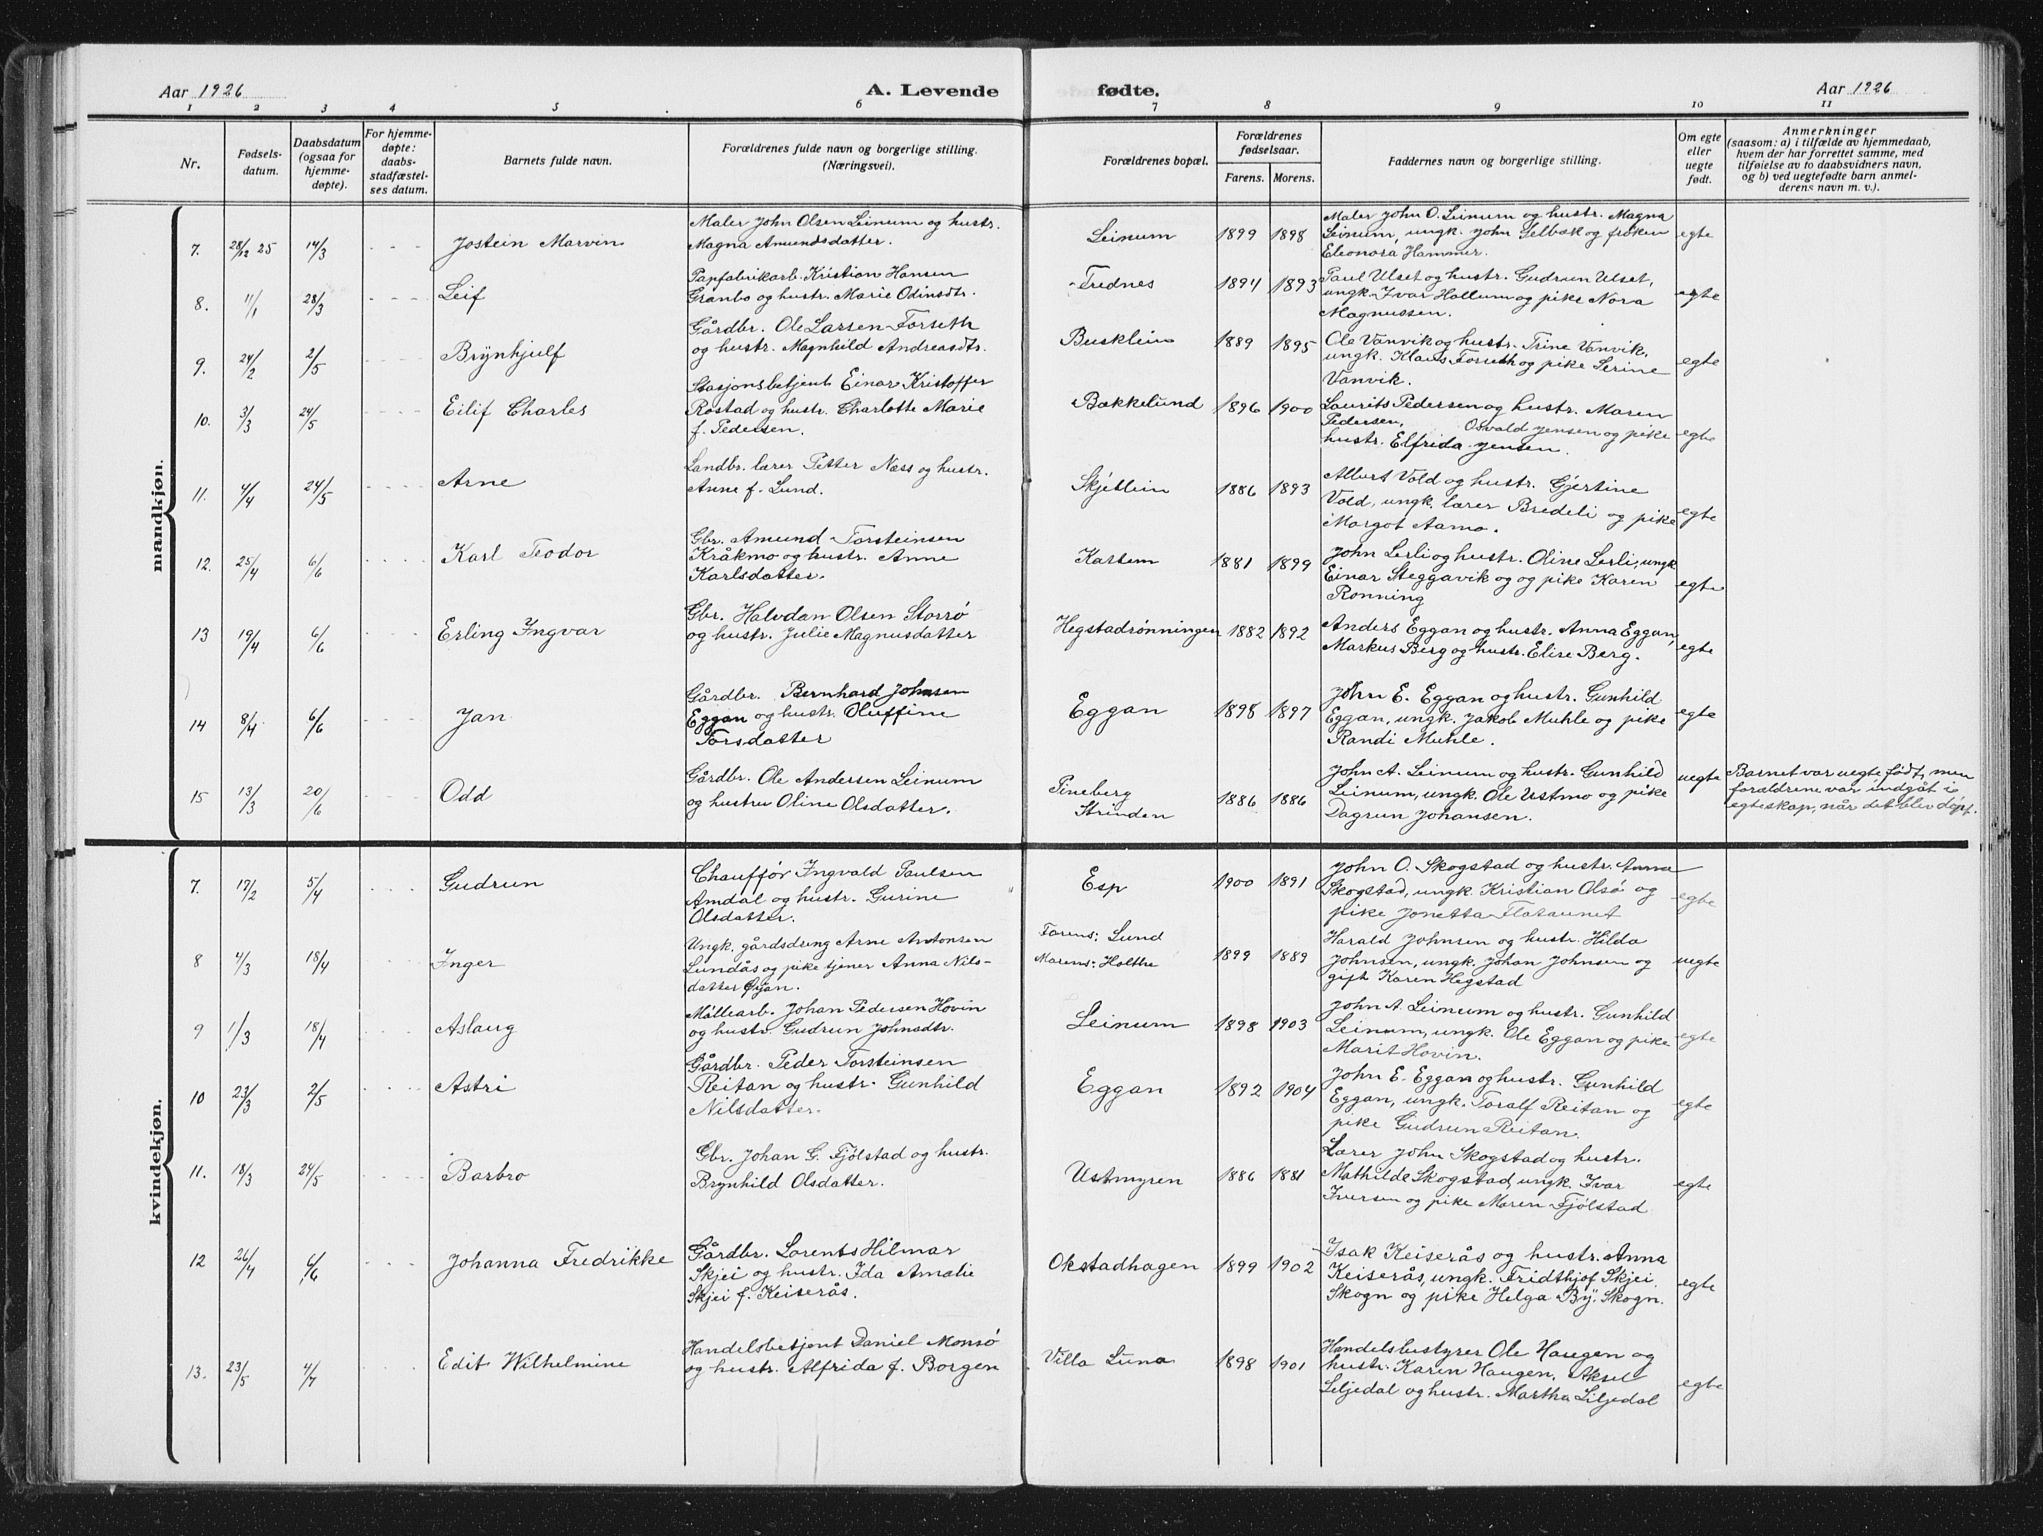 Aar 1926
A. Levende
fødte.
Aar 1926
1 2 3 4 5 6 7 8 9 10 11
Nr.
Fødsels-
datum.
Daabsdatum
(ogsaa for
hjemme-
døpte).
For hjemme-
døpte:
daabs-
stadfæstel-
ses datum.
Barnets fulde navn.
Forældrenes fulde navn og borgerlige stilling.
(Næringsvei).
Forældrenes bopæl.
Forældrenes
fødselsaar.
Farens. Morens.
Faddernes navn og borgerlige stilling.
Om egte
eller
uegte
født.
Anmerkninger
(saasom: a) i tilfælde av hjemmedaab,
hvem der har forrettet samme, med
tilføielse av to daabsvidners navn,
og b) ved uegtefødte barn anmel-
derens navn m. v.).
mandkjøn.
7. 28/12 25 14/3 Jostein Marvin
Maler John Olsen Leinum og hustr.
Magna Amundsdatter.
Leinum 1899 1898
Maler John O. Leinum og hustr. Magna
Leinum, ungk. John Selbæk og frøken
Eleonora Hammer.
egte
8. 11/1 28/3 Leif
Papfabrikarb. Kristian Hansen
Granbo og hustr. Marie Odinsdtr.
Trednes 1894 1893
Paul Ulset og hustr. Gudrun Ulset,
ungk. Ivar Hallum og pike Nora
Magnussen.
egte
9. 24/2 2/5 Brynhjulf
Gårdbr. Ole Larsen Forseth
og hustr. Magnhild Andreasdtr.
Busklein 1889 1895
Ole Vanvik og hustr. Trine Vanvik,
ungk. Klaus Forseth og pike Serine
Vanvik.
egte
10. 3/3 24/5 Eilif Charles
Stasjonsbetjent Einar Kristoffer
Rostad og hustr. Charlotte Marie
f. Pedersen.
Bakkelund 1896 1900
Laurits Pedersen og hustr. Maren
Pedersen, Osvald Jensen og pike
hustr. Elfrida Jensen.
egte
11. 4/4 24/5 Arne
Landbr. lærer Petter Næss og hustr.
Anne f. Lund.
Skjetlein 1886 1893
Albert Vold og hustr. Gjertine
Vold, ungk. lærer Bredeli og pike
Margot Aamo.
egte
12. 25/4 6/6 Karl Teodor
Gbr. Amund Torsteinsen
Kråkmo og hustr. Anne
Karlsdatter.
Kattem 1881 1899
John Lerli og hustr. Oline Lerli, ungk
Einar Steggavik og og pike Karen
Rønning
egte
13 19/4 6/6 Erling Ingvar
Gbr. Halvdan Olsen Storrø
og hustr. Julie Magnusdatter
Hegstadrønningen 1882 1892
Anders Eggan og hustr. Anna Eggan,
Markus Berg og hustr. Elise Berg.
egte
14 8/4 6/6 Jan
Gårdbr. Bernhard Johnsen
Eggan og hustr. Oluffine
Torsdatter
Eggan 1898 1897
John E. Eggan og hustr. Gunhild
Eggan, ungk. Jakob Muhle og pike
Randi Muhle.
egte
15 13/3 20/6 Odd
Gårdbr. Ole Andersen Leinum
og hustru Oline Olsdatter.
Pineberg
Strinden
1886 1886
John A. Leinum og hustr. Gunhild
Leinum, ungk. Ole Ustmo og pike
Dagrun Johansen.
uegte
Barnet var uegte født, men
forældrene var indgåt i
egteskap, når det blev døpt.
kvindekjøn.
7. 17/2 5/4 Gudrun
Chauffør Ingvald Paulsen
Amdal og hustr. Gurine
Olsdatter.
Esp 1900 1891
John O. Skogstad og hustr. Anna
Skogstad, ungk. Kristian Olsø og
pike Jonetta Flataunet
egte
8 4/3 18/4 Inger
Ungk. gårdsdreng Arne Antonsen
Lundås og pike tjener Anna Nils-
datter Øyan.
Farens: Lund
Morens: Holthe
1899 1889
Harald Johnsen og hustr. Hilda
Johnsen, ungk. Johan Johnsen og
gift Karen Hegstad
uegte
9 1/3 18/4 Aslaug
Møllearb. Johan Pedersen Hovin
og hustr. Gudrun Johnsdtr.
Leinum 1898 1903
John A. Leinum og hustr. Gunhild
Leinum, ungk. Ole Eggan og pike
Marit Hovin.
egte
10 23/3 2/5 Astri
Gårdbr. Peder Torsteinsen
Reitan og hustr. Gunhild
Nilsdatter.
Eggan 1892 1904
John E. Eggan og hustr. Gunhild
Eggan, ungk. Toralf Reitan og
pike Gudrun Reitan.
egte
11. 18/3 24/5 Barbro
Gbr. Johan G. Fjølstad og hustr.
Brynhild Olsdatter.
Ustmyren 1886 1881
Lærer John Skogstad og hustr.
Mathilde Skogstad, ungk. Ivar
Iversen og pike Maren Fjølstad
egte
12 26/4 6/6 Johanna Fredrikke
Gårdbr. Lorents Hilmar
Skjei og hustr. Ida Amalie
Skjei f. Keiserås.
Okstadhagen 1899 1902
Isak Keiserås og hustr. Anna
Keiserås, ungk. Fridthjof Skjei
Skogn og pike Helga By. Skogn.
egte
13. 23/5 4/7 Edit Wilhelmine
Handelsbetjent Daniel Monsø
og hustr. Alfrida f. Borgen
Villa Luna 1898 1901
Handelsbestyrer Ole Haugen og
hustr. Karen Haugen, Aksel
Liljedal og hustr. Martha Liljedal
egte